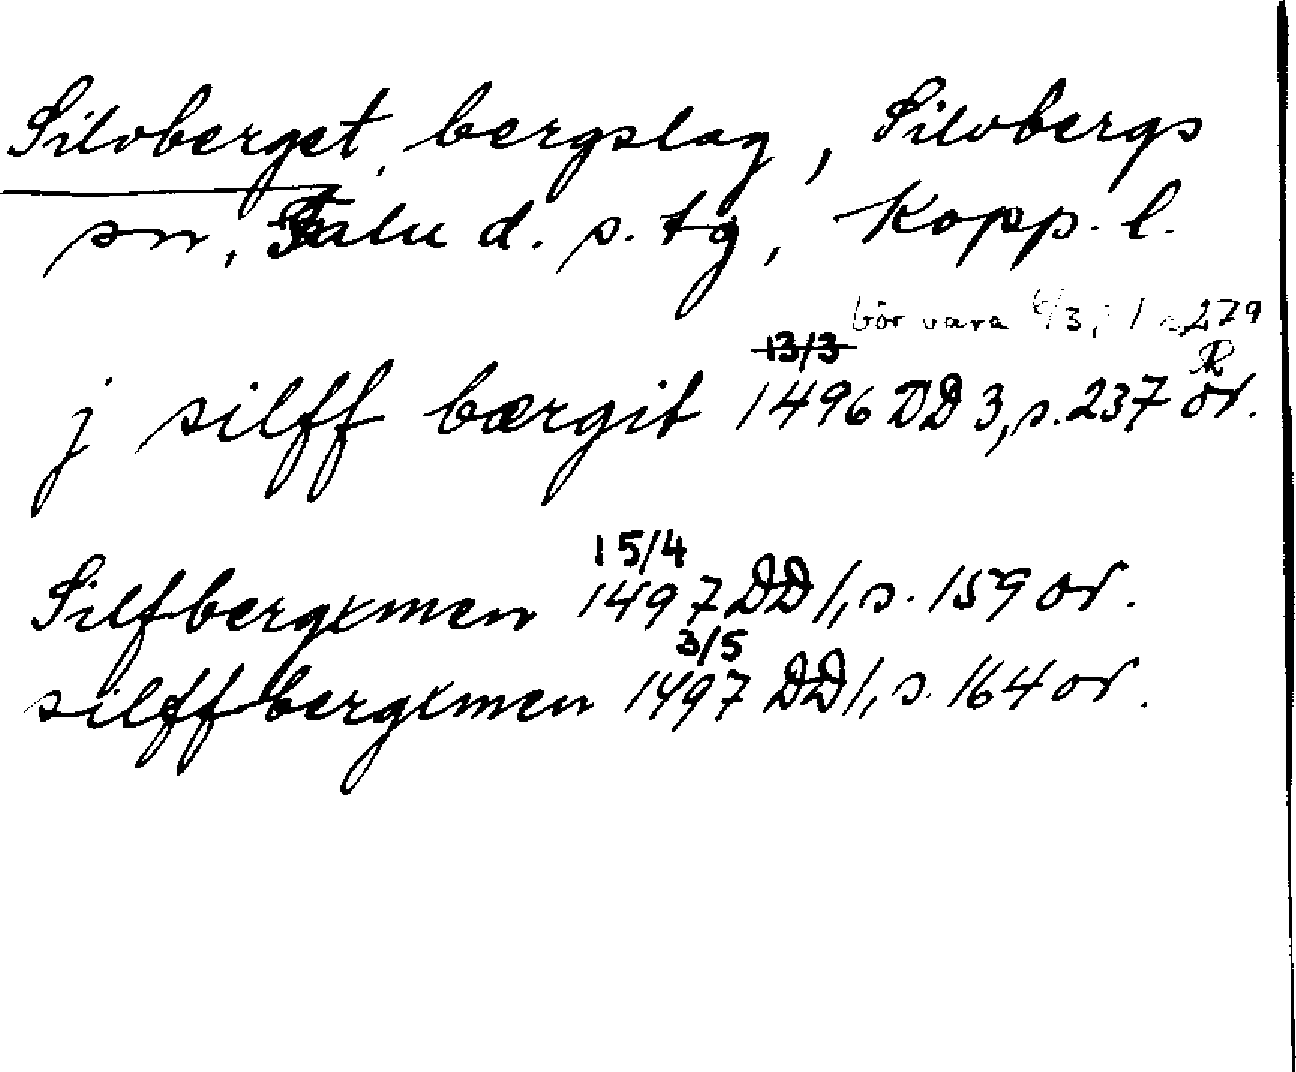 Silvberget, bergslag, Silvbergs
sn, Falu d. s. tg, Kopp. l.
bör vara 6/3; 1 s 279
13/3 R
j silff bærgit 1496 DD 3, s. 237 or.
15/4
Silfbergxmen 1497 DD 1, s. 159 or.
3/5
silffbergxmen 1497 DD 1, s. 164 or.